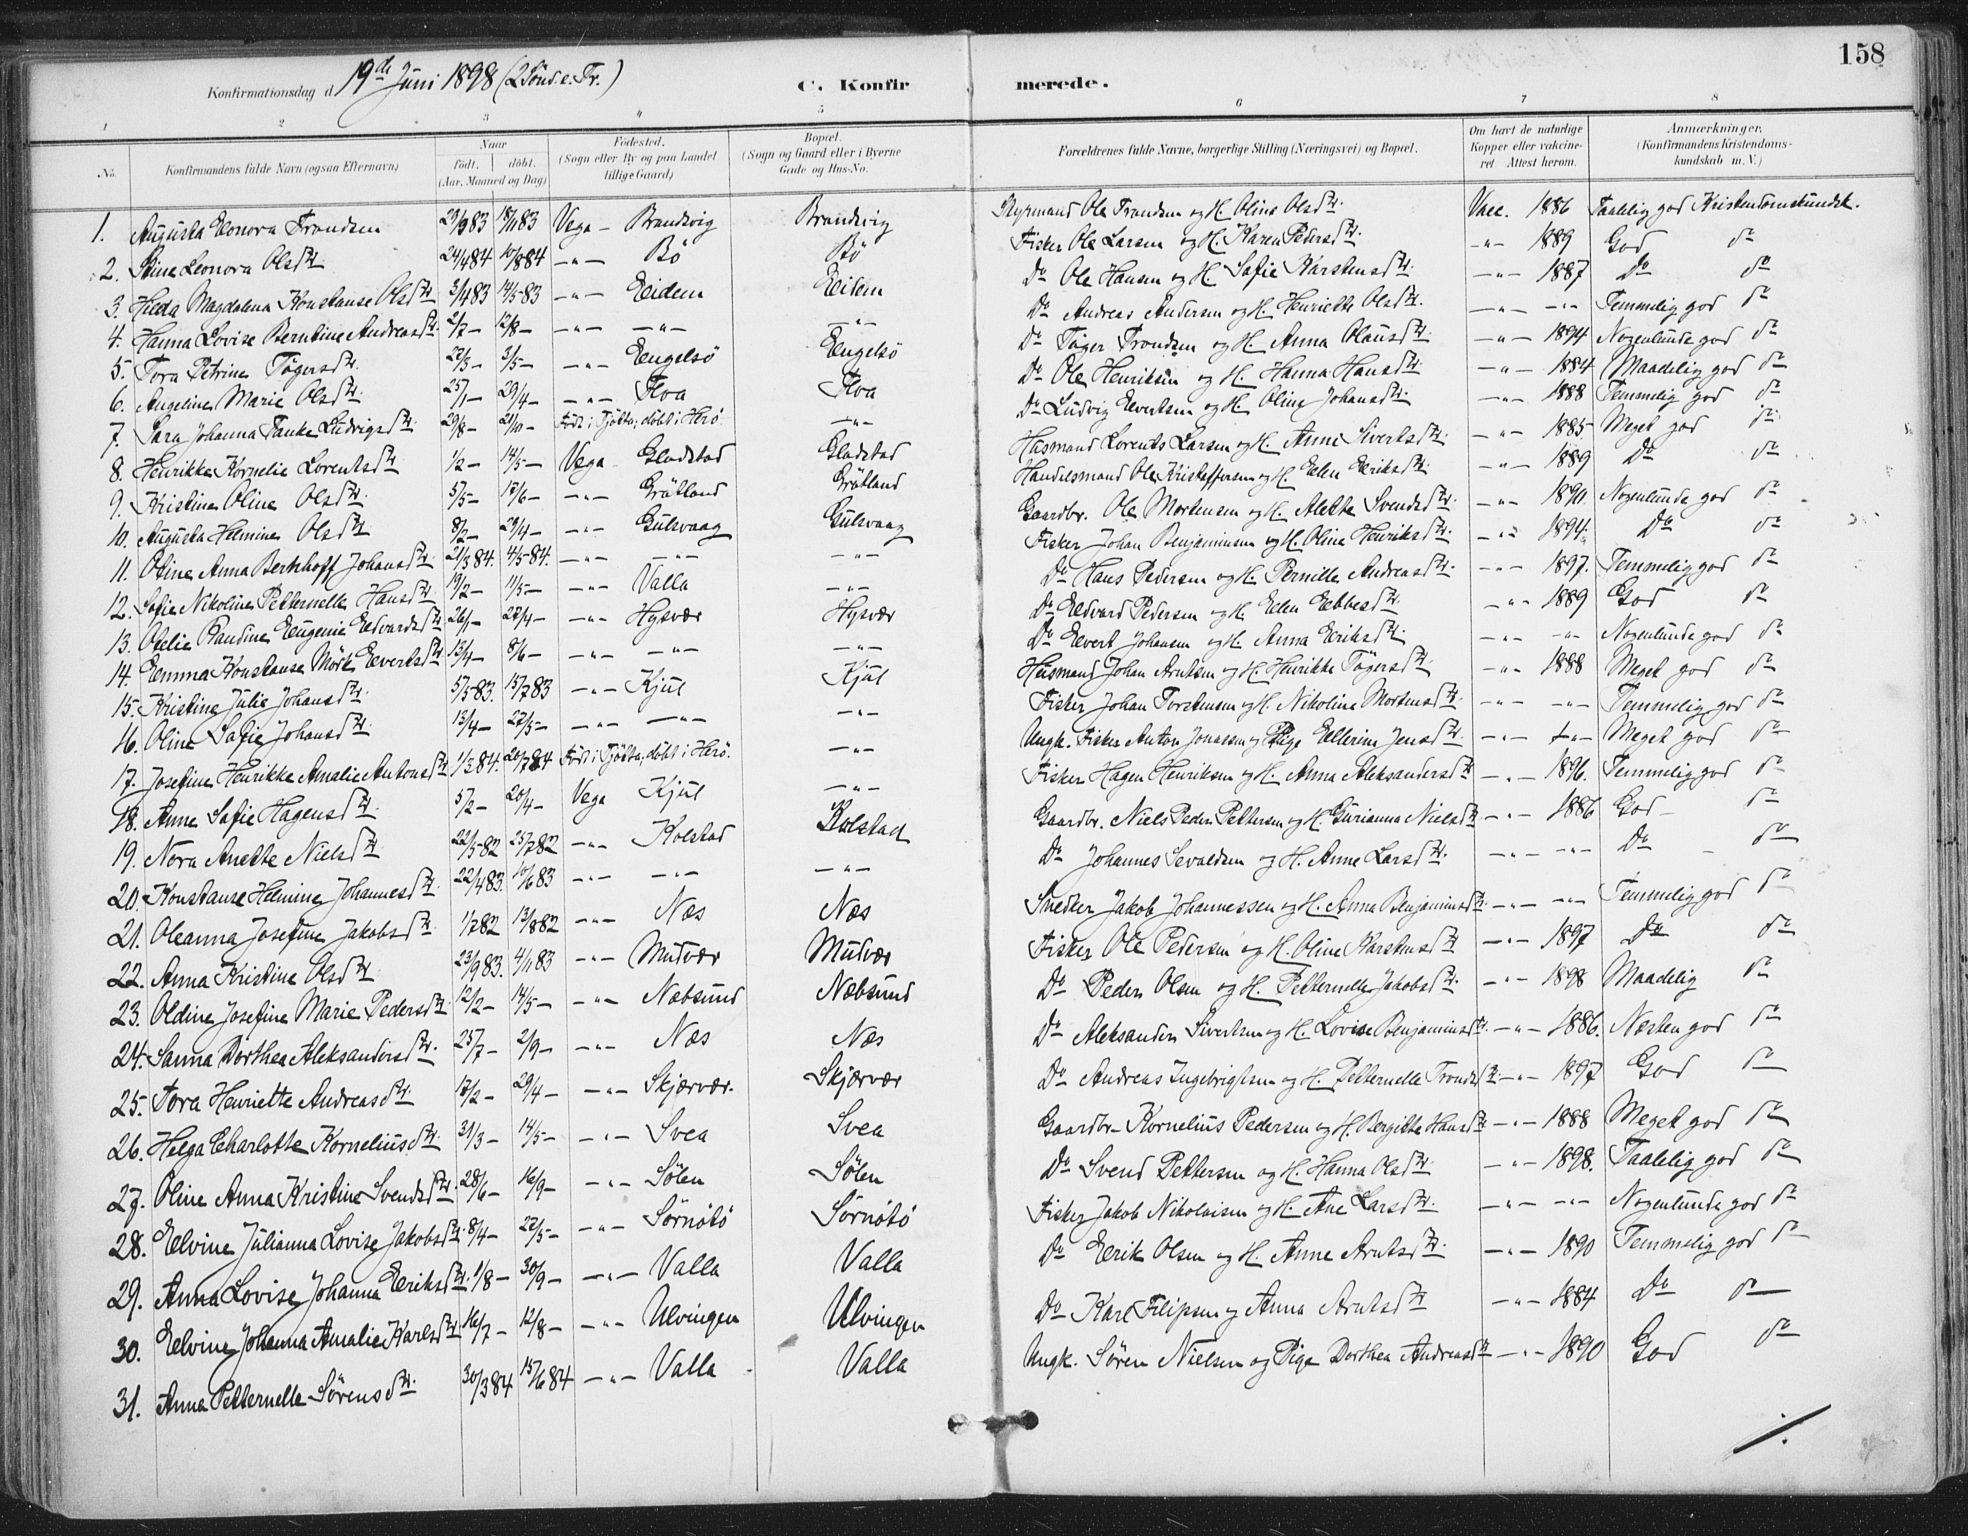 158
Konfirmationsdag d. 19de Juni 1898 (2 Sönd. e. Tr.)
C. Konfirmerede.
1 2 3 4 5 6 7 8
No. Konfirmandens fulde Navn (ogsaa Efternavn) Naar födt. döbt. (Aar, Maaned og Dag) Födested. (Sogn eller By og paa Landet tillige Gaard) Bopæl. (Sogn og Gaard eller i Byerne Gade og Hus-No. Forældrenes fulde Navne, borgerlige Stilling (Næringsvei) og Bopæl. Om havt de naturlige Kopper eller vakcineret. Attest herom. Anmærkninger. (Konfirmandens Kristendomskundskab m. V.)
1. Augusta Elonora Trondsen 29/9 83 18/11 83 Vega — Brandsvig Brandsvig Styrmand Ole Trondsen og H. Oline Olsdtr. Vacc. 1886 Taalelig god Kristendomskundsk.
2. Stine Leonora Olsdtr. 24/4 84 10/8 84 —"— Bö Bö Fisker Ole Larsen og H. Karen Pedersdtr. —"— 1889 God do
3. Hilda Magdalena Konstanse Olsdtr. 3/4 83 14/5 83 —"— Eidem Eidem Do Ole Hansen og H. Sofie Karstensdtr. —"— 1887 Do do
4. Hanna Lovise Berntine Andreasdtr. 2/7 — 12/8 — —"— —"— —"— Do Andreas Andersen og H. Henriette Olsdtr. —"— —"— Temmelig god do
5. Tora Petrine Tögersdtr. 27/3 — 3/5 — —"— Engelsö Engelsö Do Töger Trondsen og H. Anna Olausdtr. —"— 1894 Nogenlunde god do
6. Angeline Marie Olsdtr. 25/1 — 29/4 — —"— Floa Floa Do Ole Henriksen og H. Hanna Hansdtr. —"— 1884 Maadelig god do
7. Sara Johanna Tanke Ludvigsdtr. 29/8 — 21/10 — Födt i Tjötta, döbt i Herö —"— Do Ludvig Evertsen og H. Oline Johansdtr. —"— 1888 Temmelig god do
8. Henrikke Kornelie Lorentsdtr. 1/2 — 14/5 — Vega Gladstad Gladstad Husmand Lorents Larsen og H. Anne Sivertsdtr. —"— 1885 Meget god do
9. Kristine Oline Olsdtr. 5/5 — 17/6 — —"— Grötland Grötland Handelsmand Ole Kristoffersen og H. Elen Eriksdtr. —"— 1889 Do do
10. Augusta Helmine Olsdtr. 8/2 — 29/4 — —"— Gulsvaag Gulsvaag Gaardbr. Ole Mortensen og H. Alette Svendsdtr. —"— 1890 Nogenlunde god do
11. Oline Anna Berthhoff Johansdtr. 21/3 84. 4/5 84. —"— —"— —"— Fisker Johan Benjaminsen og H. Oline Henriksdtr. —"— 1894. Do do
12. Sofie Nikoline Petternelle Hansdtr. 19/2 — 11/5 — —"— Valla —"— Do Hans Pedersen og H. Pernille Andreasdtr. —"— 1897. Temmelig god do
13. Ovelie Paudine Eugenie Edvardsdtr. 26/1 — 27/4 — —"— Hysvær Hysvær Do Edvard Pedersen og H. Elen Ebbesdtr. —"— 1889 God do
14. Emma Konstanse Mörk Evertsdtr. 13/4 — 8/6 — —"— —"— —"— Do Evert Johansen og H. Anna Eriksdtr. —"— —"— Nogenlunde god do
15. Kristine Julie Johansdtr. 5/5 83. 15/7 83 —"— Kjul Kjul Husmand Johan Arntsen og H. Henrikke Tögersdtr. —"— 1888 Meget god do
16. Oline Sofie Johansdtr. 13/4 — 27/5 — —"— —"— —"— Fisker Johan Torstensen og H. Nikoline Mortensdtr. —"— —"— Temmelig god do
17. Josefine Henrikke Amalie Antonsdtr. 1/3 84. 20/7 84 Födt i Tjötta, döbt i Herö. —"— Ungk. Fisker Anton Jonassen og Pige Ellerine Jensdtr. —"— —"— Meget god do
18. Anne Sofie Hagensdtr. 5/2 — 20/4 — Vega Kjul —"— Fisker Hagen Henriksen og H. Anna Aleksandersdtr. —"— 1896. Temmelig god do
19. Nora Anette Nielsdtr. 22/5 82 25/7 82 —"— Kolstad Kolstad Gaardbr. Niels Peder Pettersen og H. Gurianna Nielsdtr. —"— 1886 God — do
20. Konstanse Helmine Johannesdtr. 22/4 83. 10/6 83 —"— —"— —"— Do Johannes Sevaldsen og H. Anne Larsdtr. —"— —"— Do — do
21. Oleanna Josefine Jakobsdtr. 1/7 82 13/8 82 —"— Næs Næs Snedker Jakob Johannessen og H. Anna Benjaminsdtr. —"— —"— Temmelig god do
22. Anna Kristine Olsdtr. 23/9 83. 4/11 83 —"— Mudvær Mudvær Fisker Ole Pedersen og H. Oline Karstensdtr. —"— 1897 Do do
23. Oldine Josefine Marie Pedersdtr. 12/2 — 14/5 — —"— Næbsund Næbsund Do Peder Olsen og H. Petternelle Jakobsdtr. —"— 1898 Maadelig do
24. Sanna Dorthea Aleksandersdtr. 25/7 — 2/9 — —"— Næs Næs Do Aleksander Sivertsen og H. Lovise Benjaminsdtr. —"— 1886. Næsten god do
25. Tora Henriette Andreasdtr. 17/2 — 29/4 — —"— Skjærvær. Skjærvær Do Andreas Ingebrigtsen og H. Petternelle Trondsdtr. —"— 1897 God do
26. Helga Charlotte Korneliusdtr. 31/3 — 14/5 — —"— Svea Svea Gaardbr. Kornelius Pedersen og H. Bergitte Hansdtr. —"— 1888 Meget god do
27. Oline Anna Kristine Svendsdtr. 28/6 — 16/9 — —"— Sölen Sölen Do Svend Pettersen og H. Hanna Olsdtr. —"— 1898. Taalelig god do
28. Elvine Julianna Lovise Jakobsdtr. 8/4 — 27/5 — —"— Sörnötö Sörnötö Fisker Jakob Nikolaisen og H. Ane Larsdtr. —"— —"— Nogenlunde god do
29. Anna Lovise Johanna Eriksdtr. 1/8 — 30/9 — —"— Valla Valla Do Erik Olsen og H. Anne Arntsdtr. —"— 1890 Temmelig god do
30. Elvine Johanna Amalie Karlsdtr. 16/7 — 12/8 — —"— Ulvingen Ulvingen Do Karl Filipsen og Anna Arntsdtr. —"— 1884 Do do
31. Anna Petternelle Sörensdtr. 30/3 84 15/6 84 —"— Valla Valla Ungk. Sören Nielsen og Pige Dorthea Andreasdtr. —"— 1890 God do